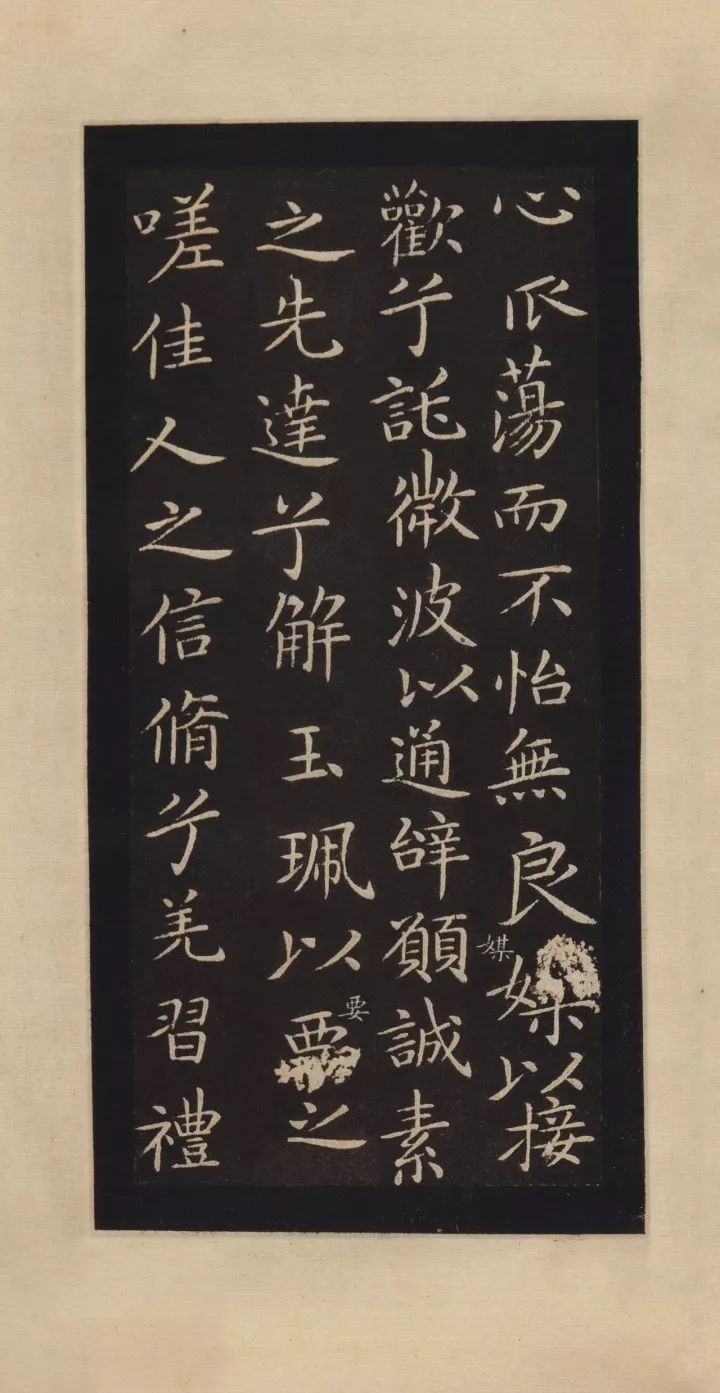 心㡿蕩而不怡無良媒以接
懽兮託微波以通辝願誠素
之先達兮解玉珮以要之
嗟佳人之信脩兮羌習禮
媒
要